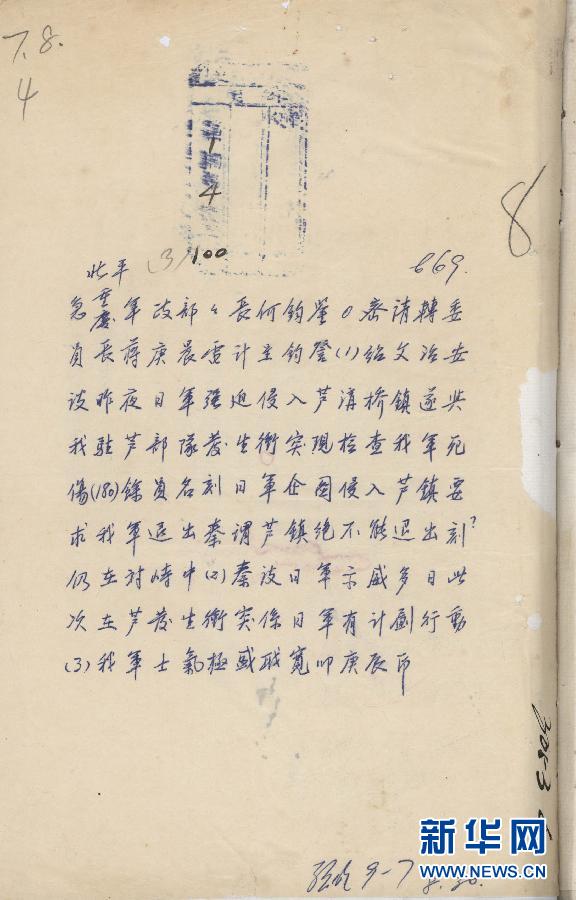 7.8.
4
1
4
8
北平 (3)/100 669.
急重慶軍政部部長何鈞鑒密請轉委
員長蔣庚晨電計呈鈞詧(1)紹文治安
談昨夜日軍强迫侵入芦溝桥鎮遂與
我駐芦部隊發生衝突現檢查我軍死
傷(180)餘員名刻日軍企圖侵入芦鎮要
求我軍退出秦謂芦鎮绝不能退出刻?
仍在对峙中(2)秦談日軍示威多日此
次在芦發生衝突係日軍有計劃行動
(3)我軍士氣極盛职寬叩庚辰印
9-7
新华网
WWW.NEWS.CN